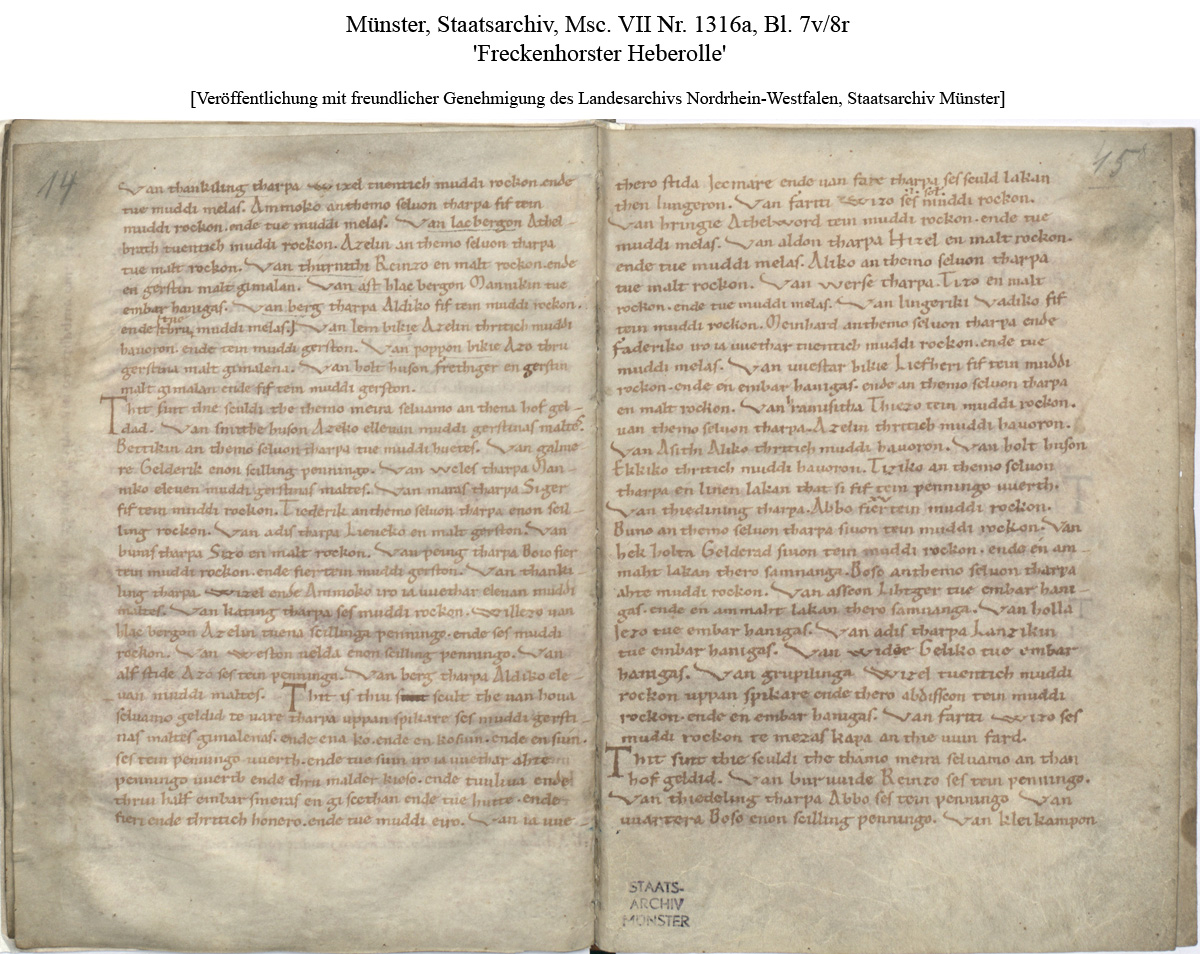 Münster, Staatsarchiv, Msc. VII Nr. 1316a, Bl. 7v/8r
'Freckenhorster Heberolle'
[Veröffentlichung mit freundlicher Genehmigung des Landesarchivs Nordrhein-Westfalen, Staatsarchiv Münster]
14
Van thankiling tharpa Wizel tuentich muddi rockon. ende
tue muddi melas. Ammoko anthemo seluon tharpa fif tein
muddi rockon. ende tue muddi melas. Van lacbergon Athel-
brath tuentich muddi rockon. Azelin an themo seluon tharpa
tue malt rockon. Van thurnithi Reinzo en malt rockon. ende
en gerstin malt gimalan. Van ast blac bergon Mannikin tue
embar hanigas. Van berg tharpa Aldiko fif tein muddi rockon.
ende thru muddi melas. Van lem bikie Azelin thritich muddi
hauoron. ende tein muddi gerston. Van poppon bikie Azo thru
gerstina malt gimalena. Van holt huson frethger en gerstin
malt gimalan ende fif tein muddi gerston.
Thit sint thie sculdi the themo meira seluamo an thena hof gel-
dad. Van smithe huson Azeko elleuan muddi gerstinas maltes.
Bettikin an themo seluon tharpa tue muddi huetes. Van galme
re Gelderik enon scilling penningo. Van weles tharpa Man-
niko eleuen muddi gerstinas maltes. Van maras tharpa Siger
fif tein muddi rockon. Liederik anthemo seluon tharpa enon scil-
ling rockon. Van adis tharpa Lieneko en malt gerston. Van
bunis tharpa Sizo en malt rockon. Van peing tharpa Boio fier
tein muddi rockon. ende fier tein muddi gerston. Van thanki-
ling tharpa Wizel ende Ammoko iro ia uuethar eleuan muddi
maltes. Van kating tharpa ses muddi rockon. Willezo van
blac bergon Azelin tuena scillinga penningo. ende ses muddi
rockon. Van weston uelda enon scilling penningo. Van
alf stide Azo ses tein penninga. Van berg tharpa Aldiko ele-
uan muddi maltes. Thit is thiu sculd the van houa
seluamo geldid te uare tharpa uppan spikare ses muddi gersti-
nas maltes gimalenas. ende ena ko. ende en kosuin. ende en suin.
ses tein penningo uuerth. ende tue suin iro ia uuethar ahte
penningo uuerth ende thru malder kieso. ende tuiliua ende
thriu half embar smeras en gi scethan ende tue hutte. ende
fieri ende thritich honero. ende tue muddi eiro. Van ia uue-
15
thero stida Iecmare ende uan fare tharpa ses sculd lakan
then lungeron. Van fariti Wizo ses muddi rockon.
Van bringie Athelword tein muddi rockon. ende tue
muddi melas. Van aldon tharpa Hizel en malt rockon.
ende tue muddi melas. Aliko an themo seluon tharpa
tue malt rockon. Van werse tharpa Tizo en malt
rockon. ende tue muddi melas. Van lingeriki Vadiko fif
tein muddi rockon. Meinhard anthemo seluon tharpa ende
faderiko iro ia uuethar tuentich muddi rockon. ende tue
muddi melas. Van uuestar bikie Liefheri fif tein muddi
rockon. ende en embar hanigas. ende an themo seluon tharpa
en malt rockon. Van hramisitha Thiezo tein muddi rockon.
uan themo seluon tharpa. Azelin thritich muddi hauoron.
Van Asithi Aliko thritich muddi hauoron. Van holt huson
Ekkiko thritich muddi hauoron. Tiziko an themo seluon
tharpa en linen lakan that si fif tein penningo uuerth.
Van thiedining tharpa. Abbo fier tein muddi rockon.
Buno an themo seluon tharpa siuon tein muddi rockon. Van
hek holta Gelderad siuon tein muddi rockon. ende en am-
maht lakan thero samnanga. Boso anthemo seluon tharpa
ahte muddi rockon. Van asseon Libtger tue embar hani-
gas. ende en ammaht lakan thero samnanga. Van holla
Iezo tue embar hanigas. Van adis tharpa Lanzikin
tue embar hanigas. Van widoe Geliko tue embar
hanigas. Van grupilinga Wizel tuentich muddi
rockon uppan spikare ende thero abdisscon tein muddi
rockon. ende en embar hanigas. Van fariti Wizo ses
muddi rockon te mezas kapa an thie uuin fard.
Thit sint thie sculdi the thamo meira seluamo an than
hof geldid. Van buruuide Reinzo ses tein penningo.
Van thiedeling tharpa Abbo ses tein penningo Van
uuartera Boso enon scilling penningo. Van kleikampon
STAATS-
ARCHIV
MÜNSTER